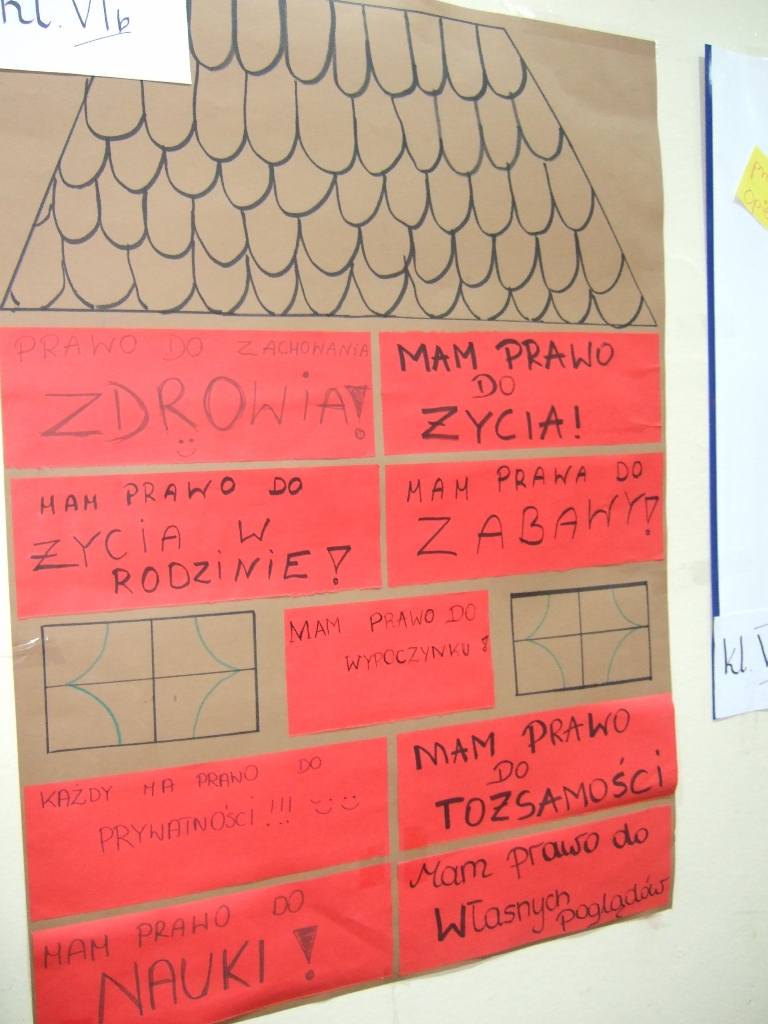 kl. VIb
PRAWO DO ZACHOWANIA
ZDROWiA!
MAM PRAWO
DO
ZYCIA!
MAM PRAWO DO
ZYCiA W
RODZiNiE!
MAM PRAWA DO
ZABAWY!
MAM PRAWO DO
WYPOCZYNKU!
KAŻDY MA PRAWO DO
PRYWATNOŚCi!!!
MAM PRAWO
DO
TOZSAMOŚCi
MAM PRAWO DO
NAUKi!
Mam prawo do
Własnych
poglądów
kl. V